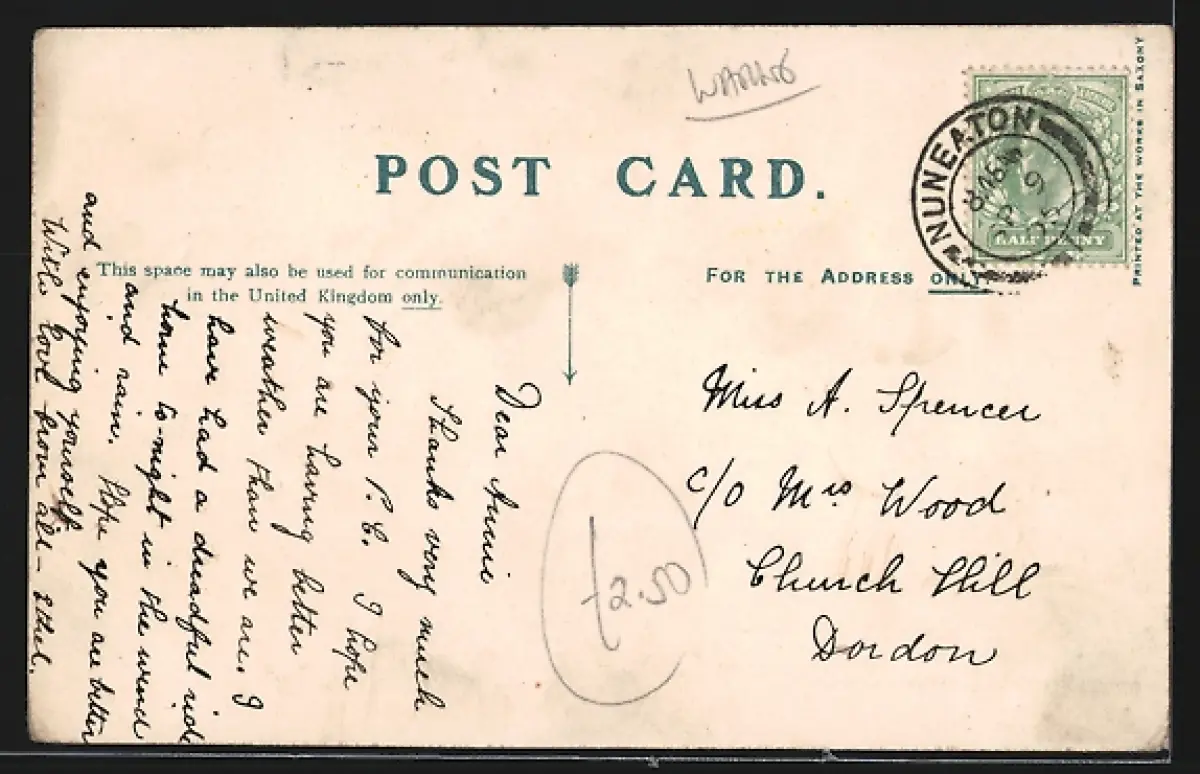 WARWS
POST CARD.
PRINTED AT THE WORKS IN SAXONY
NUNEATON
HALFPENNY
This space may also be used for communication
in the United Kingdom only.
FOR THE ADDRESS ONLY.
Dear Annie
Thanks very much
for your P.C. I hope
you are having better
weather than we are. I
have had a dreadful ride
home to-night in the wind
and rain. Hope you are better
and enjoying yourself.
With love from all - Ethel.
Miss A. Spencer
c/o Mrs Wood
Church Hill
Dordon
£2.50